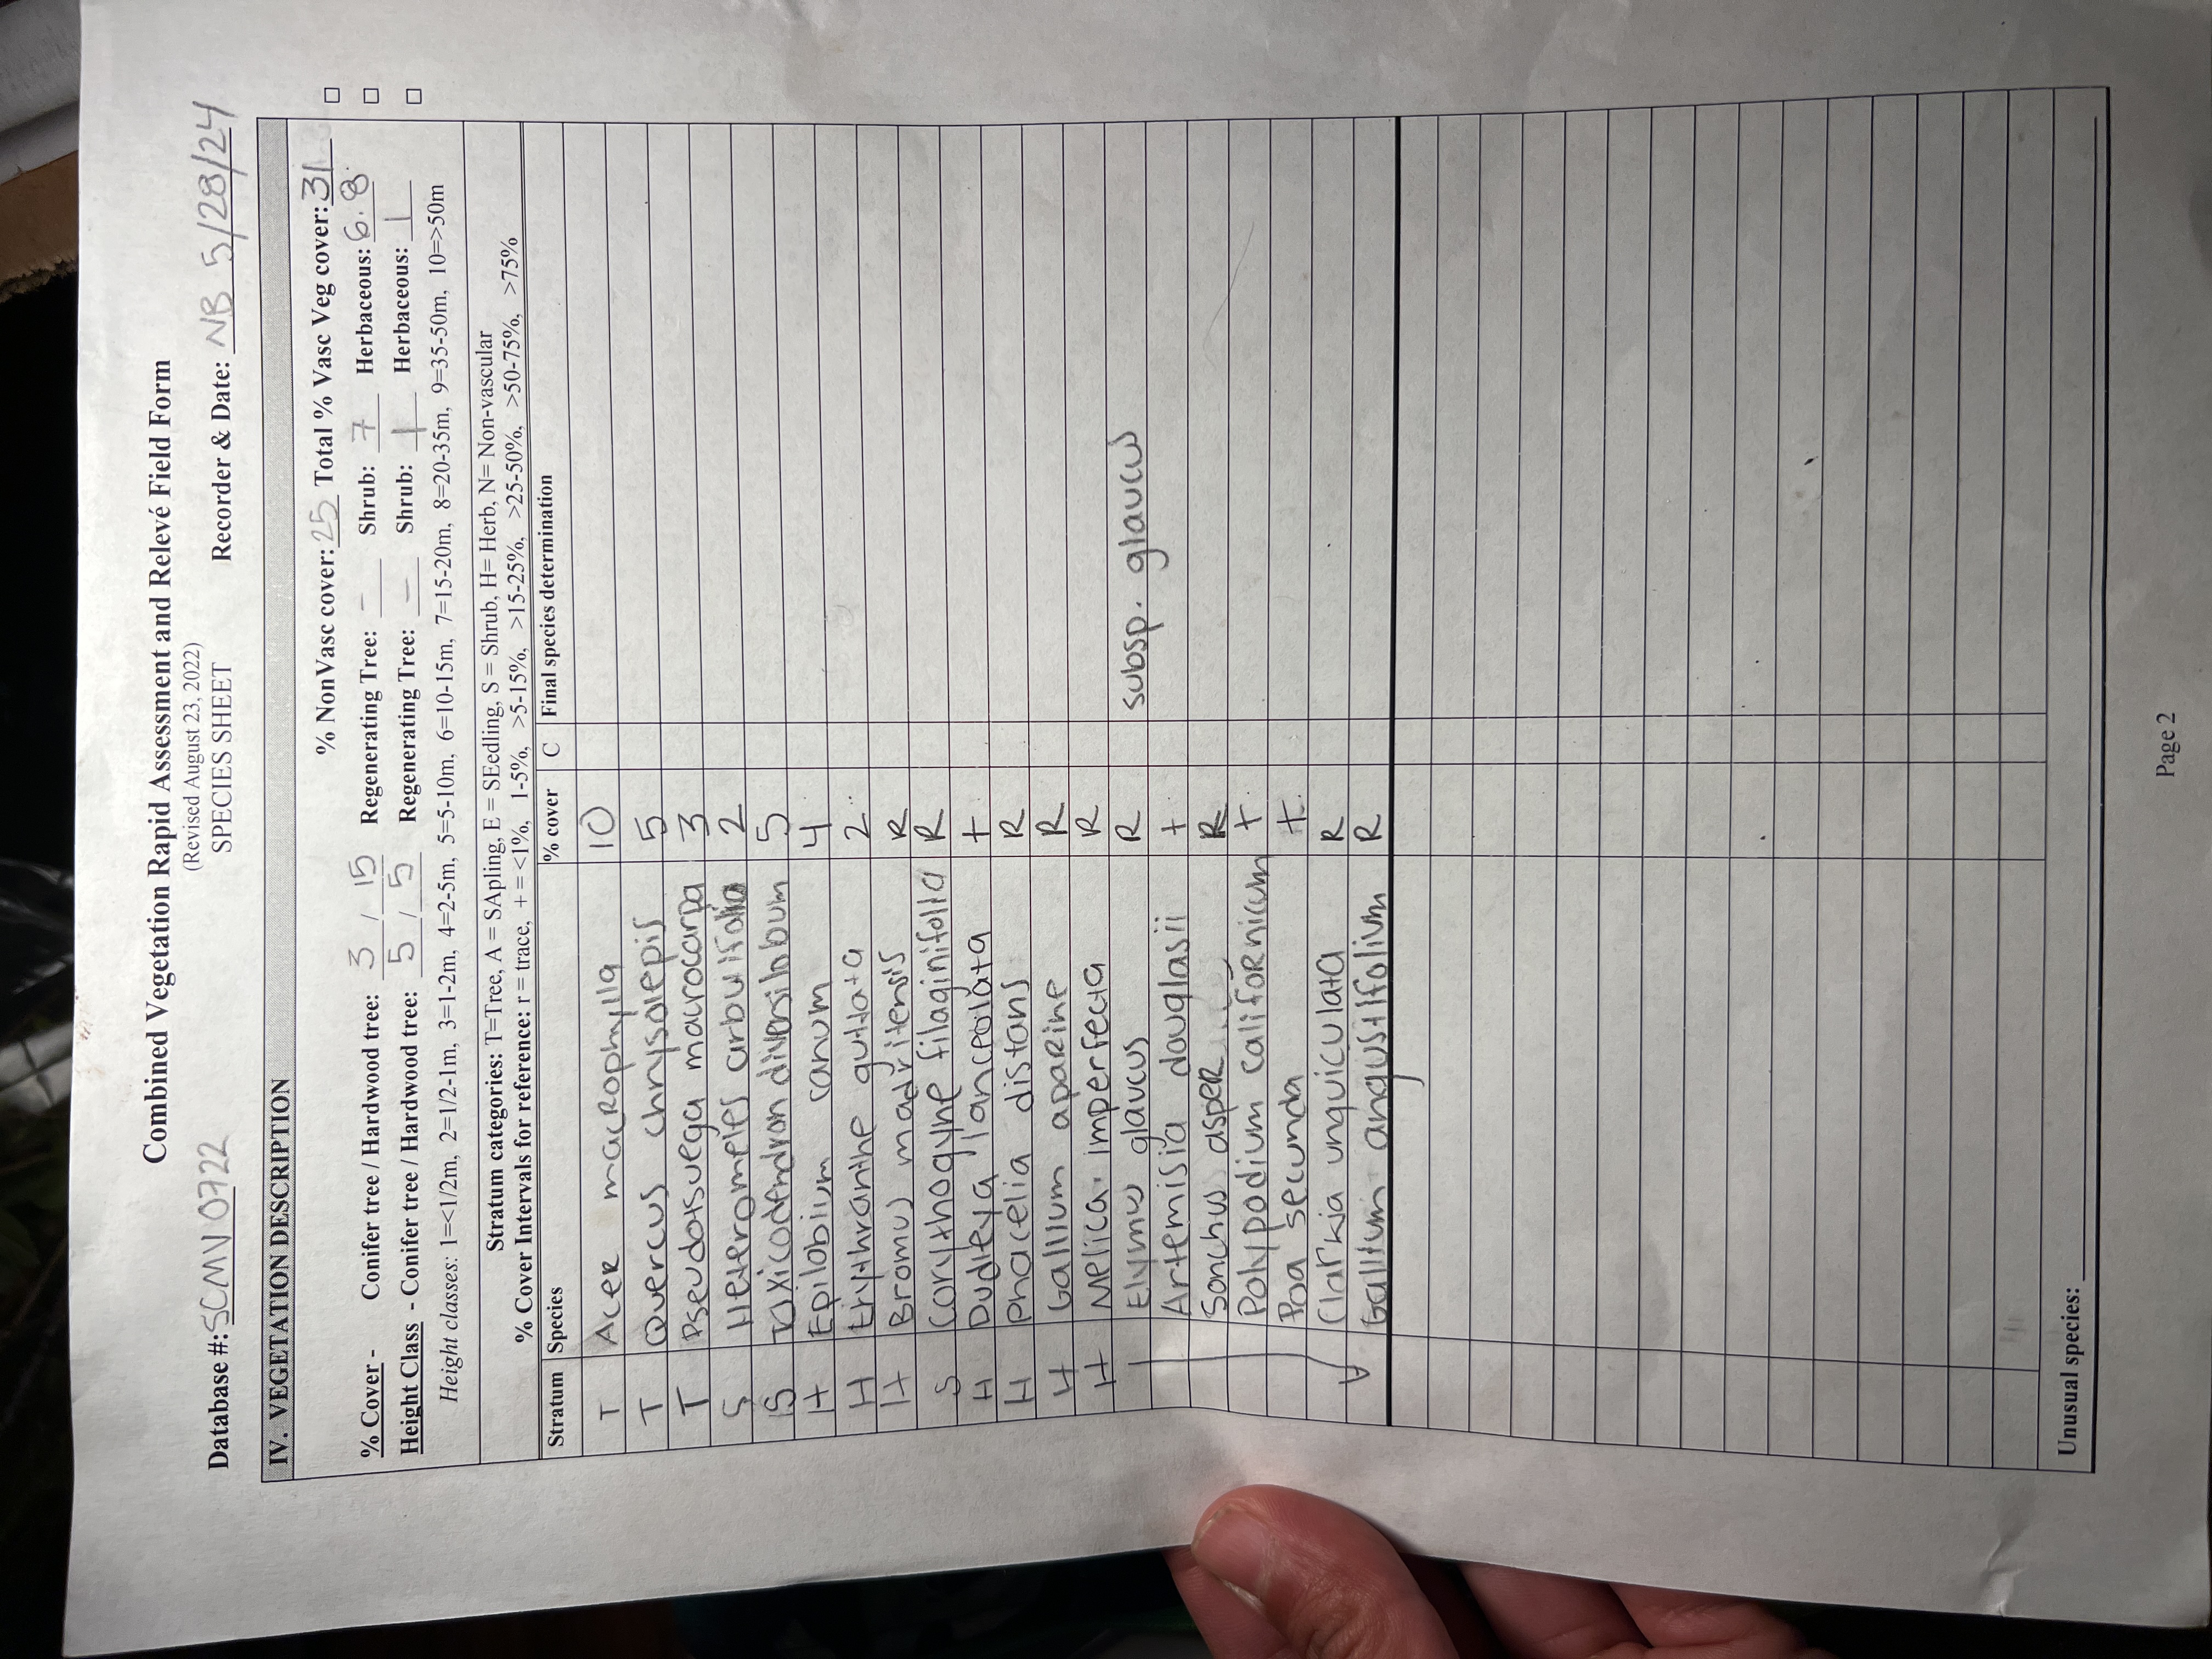 Combined Vegetation Rapid Assessment and Relevé Field Form
(Revised August 23, 2022)
SPECIES SHEET
Database #: SCMV0722 Recorder & Date: NB 5/28/24
IV. VEGETATION DESCRIPTION
% NonVasc cover: 25 Total % Vasc Veg cover: 31 □
% Cover - Conifer tree / Hardwood tree: 3 / 15 Regenerating Tree: - Shrub: 7 Herbaceous: 6.8 □
Height Class - Conifer tree / Hardwood tree: 5 / 5 Regenerating Tree: - Shrub: 1 Herbaceous: 1 □
Height classes: 1=<1/2m, 2=1/2-1m, 3=1-2m, 4=2-5m, 5=5-10m, 6=10-15m, 7=15-20m, 8=20-35m, 9=35-50m, 10=>50m
Stratum categories: T=Tree, A = SApling, E = SEedling, S = Shrub, H= Herb, N= Non-vascular
% Cover Intervals for reference: r = trace, + = <1%, 1-5%, >5-15%, >15-25%, >25-50%, >50-75%, >75%
Stratum Species % cover C Final species determination
T Acer macrophylla 10
T Quercus chrysolepis 5
T Pseudotsuega macrocarpa 3
S Heteromeles arbutifolia 2
S Toxicodendron diversilobum 5
H Epilobium canum 4
H Erythranthe guttata 2
H Bromus madritensis R
S Corythogyne filaginifolia R
H Dudleya lanceolata +
H Phacelia distans R
H Gallium aparine R
H Melica imperfecta R
Elymus glaucus R subsp. glaucus
Artemisia douglasii +
Sonchus asper R
Polypodium californicum +
Poa secunda +
Clarkia unguiculata R
Gallium angustifolium R
Unusual species:
Page 2